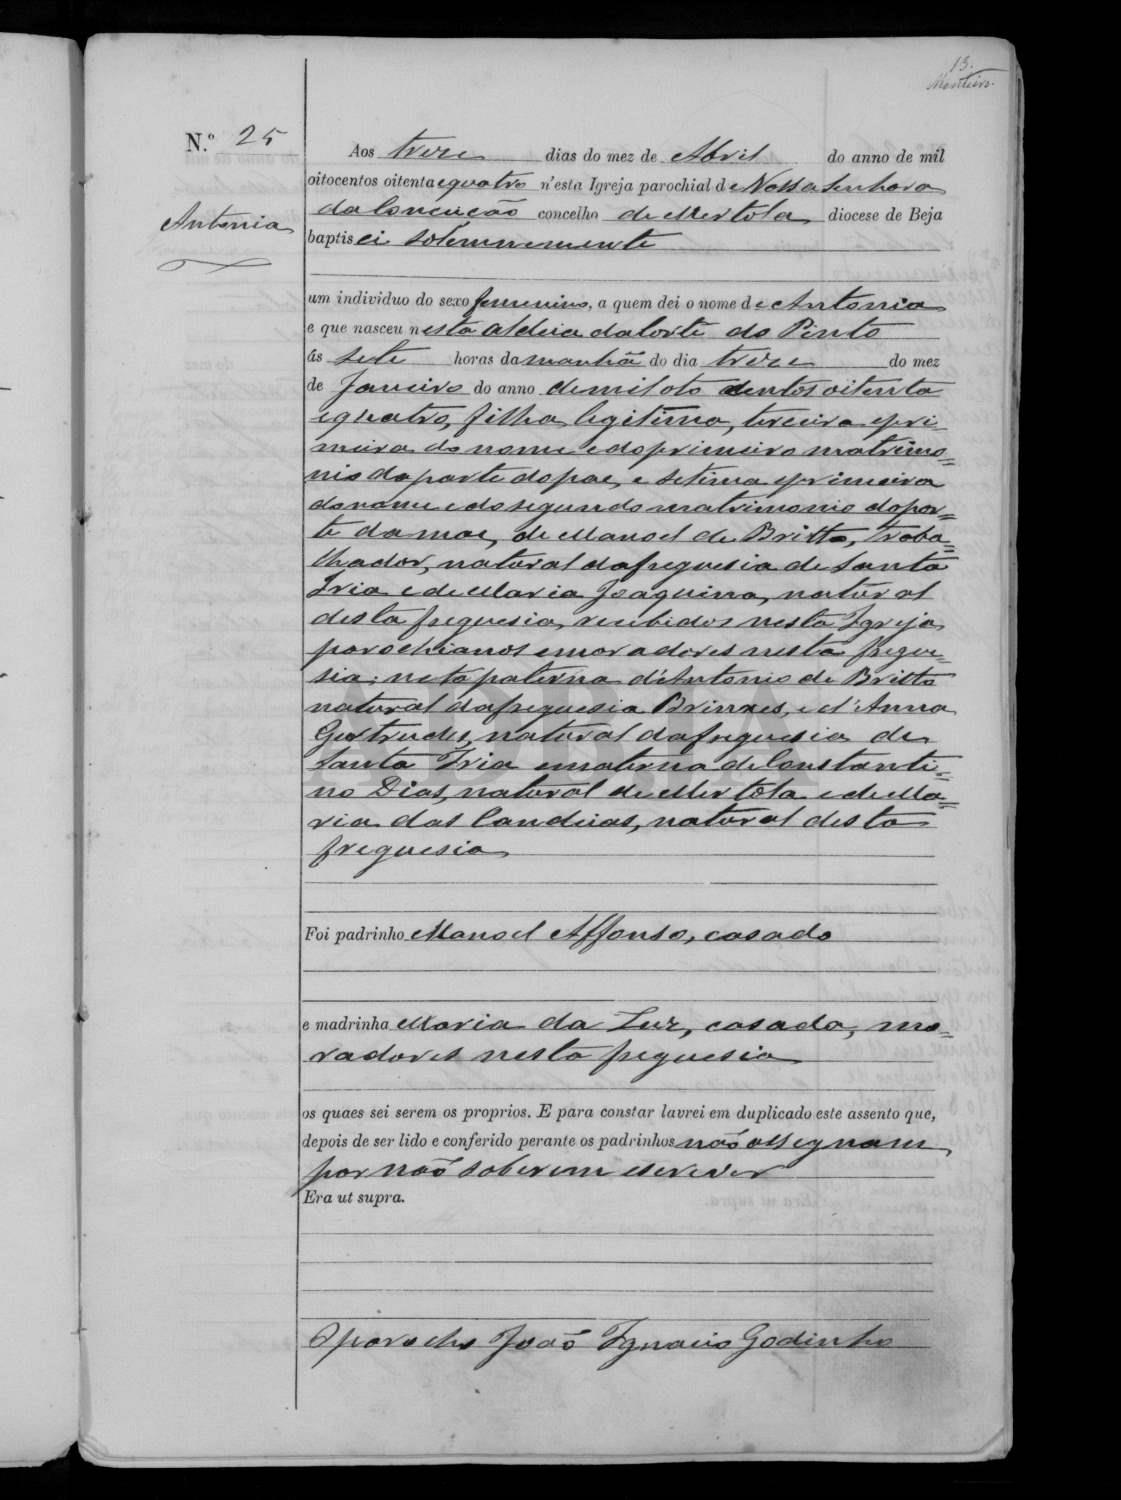 13.
Monteiro.
N.º 25
Antonia
Aos treze dias do mez de Abril do anno de mil
oitocentos oitenta e quatro n'esta Igreja parochial de Nossa Senhora
da Conceição concelho de Mertola, diocese de Beja
baptisei solemnemente
um individuo do sexo femenino, a quem dei o nome de Antonia
e que nasceu nesta aldeia da Corte do Pinto
ás sete horas da manhã do dia treze do mez
de Janeiro do anno de mil oito centos oitenta
e quatro, filha legitima, terceira e pri-
meira do nome e do primeiro matrimo=
nio da parte do pae, e setima e primeira
do nome e do segundo matrimonio da par=
te da mae, de Manoel de Britto, traba=
lhador, natural da freguesia de Santa
Iria e de Maria Joaquina, natural
desta freguesia, recebidos nesta Igreja,
parochianos e moradores nesta fregue-
sia: neta paterna d'Antonio de Britto
natural da freguesia Brinxes, e d'Anna
Gertrudes, natural da freguesia de
Santa Iria e materna de Constanti=
no Dias, natural de Mertola e de Ma=
ria das Candeias, natural desta
freguesia
Foi padrinho Manoel Affonso, casado
e madrinha Maria da Luz, casada, mo=
radores nesta freguesia
os quaes sei serem os proprios. E para constar lavrei em duplicado este assento que,
depois de ser lido e conferido perante os padrinhos não assegnam,
por não saberem escrever
Era ut supra.
O parocho João Ignacio Godinho
ADBJA